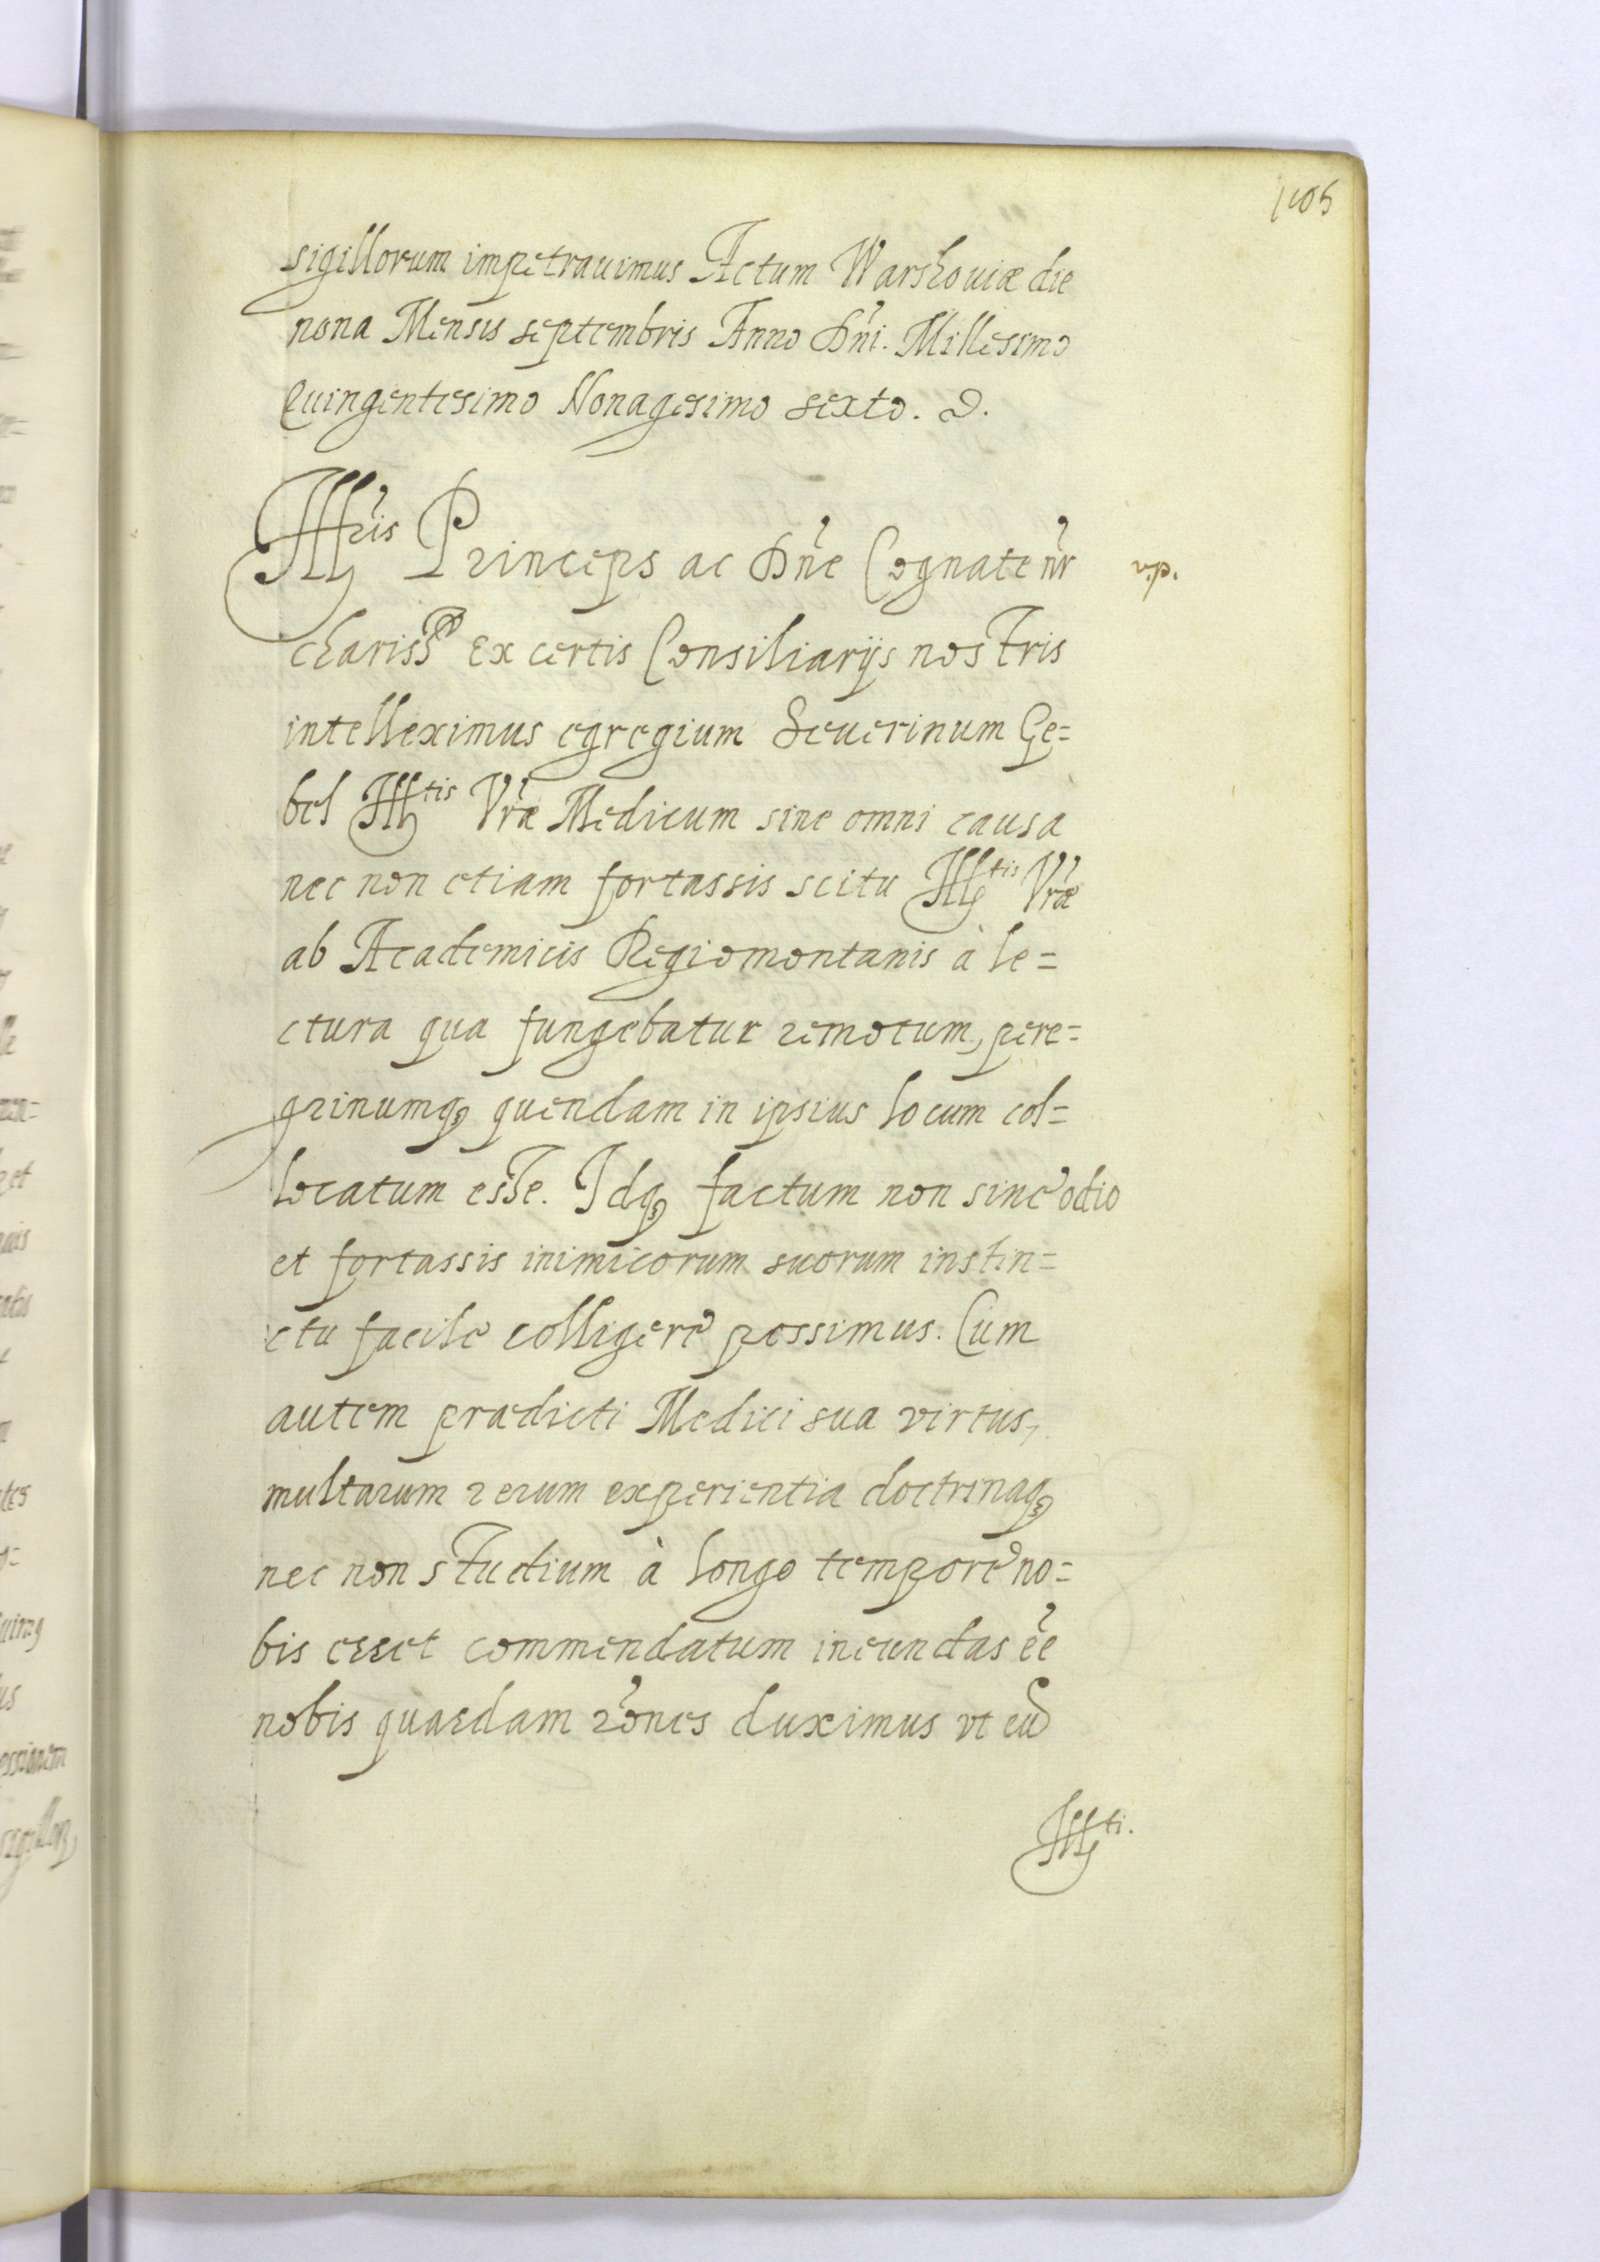 105
sigillorum impetrauimus Actum Warshouiæ die
nona Mensis septembris Anno Dn̄i. Millesimo
Quingentesimo Nonagesimo sexto. D.
Princeps ac Dn̄e Cognate nr̄
chariss. Ex certis Consiliarijs nostris
intelleximus egregium Seuerinum Ge=
bel Ill^tis Vr̄æ Medicum sine omni causa
nec non etiam fortassis scitu Ill^tis Vr̄æ
ab Academicis Regiomontanis à le=
ctura qua fungebatur remotum, pere=
grinumq; quendam in ipsius locum col=
locatum esse. Idq; factum non sine odio
et fortassis inimicorum suorum instin=
ctu facile colligere possimus. Cum
autem prædicti Medici sua virtus,
multarum rerum experientia doctrinaq;
nec non studium à longo tempore no=
bis esset commendatum ineundas ēe
nobis quasdam rōnes duximus vt eū
Ill^ti.